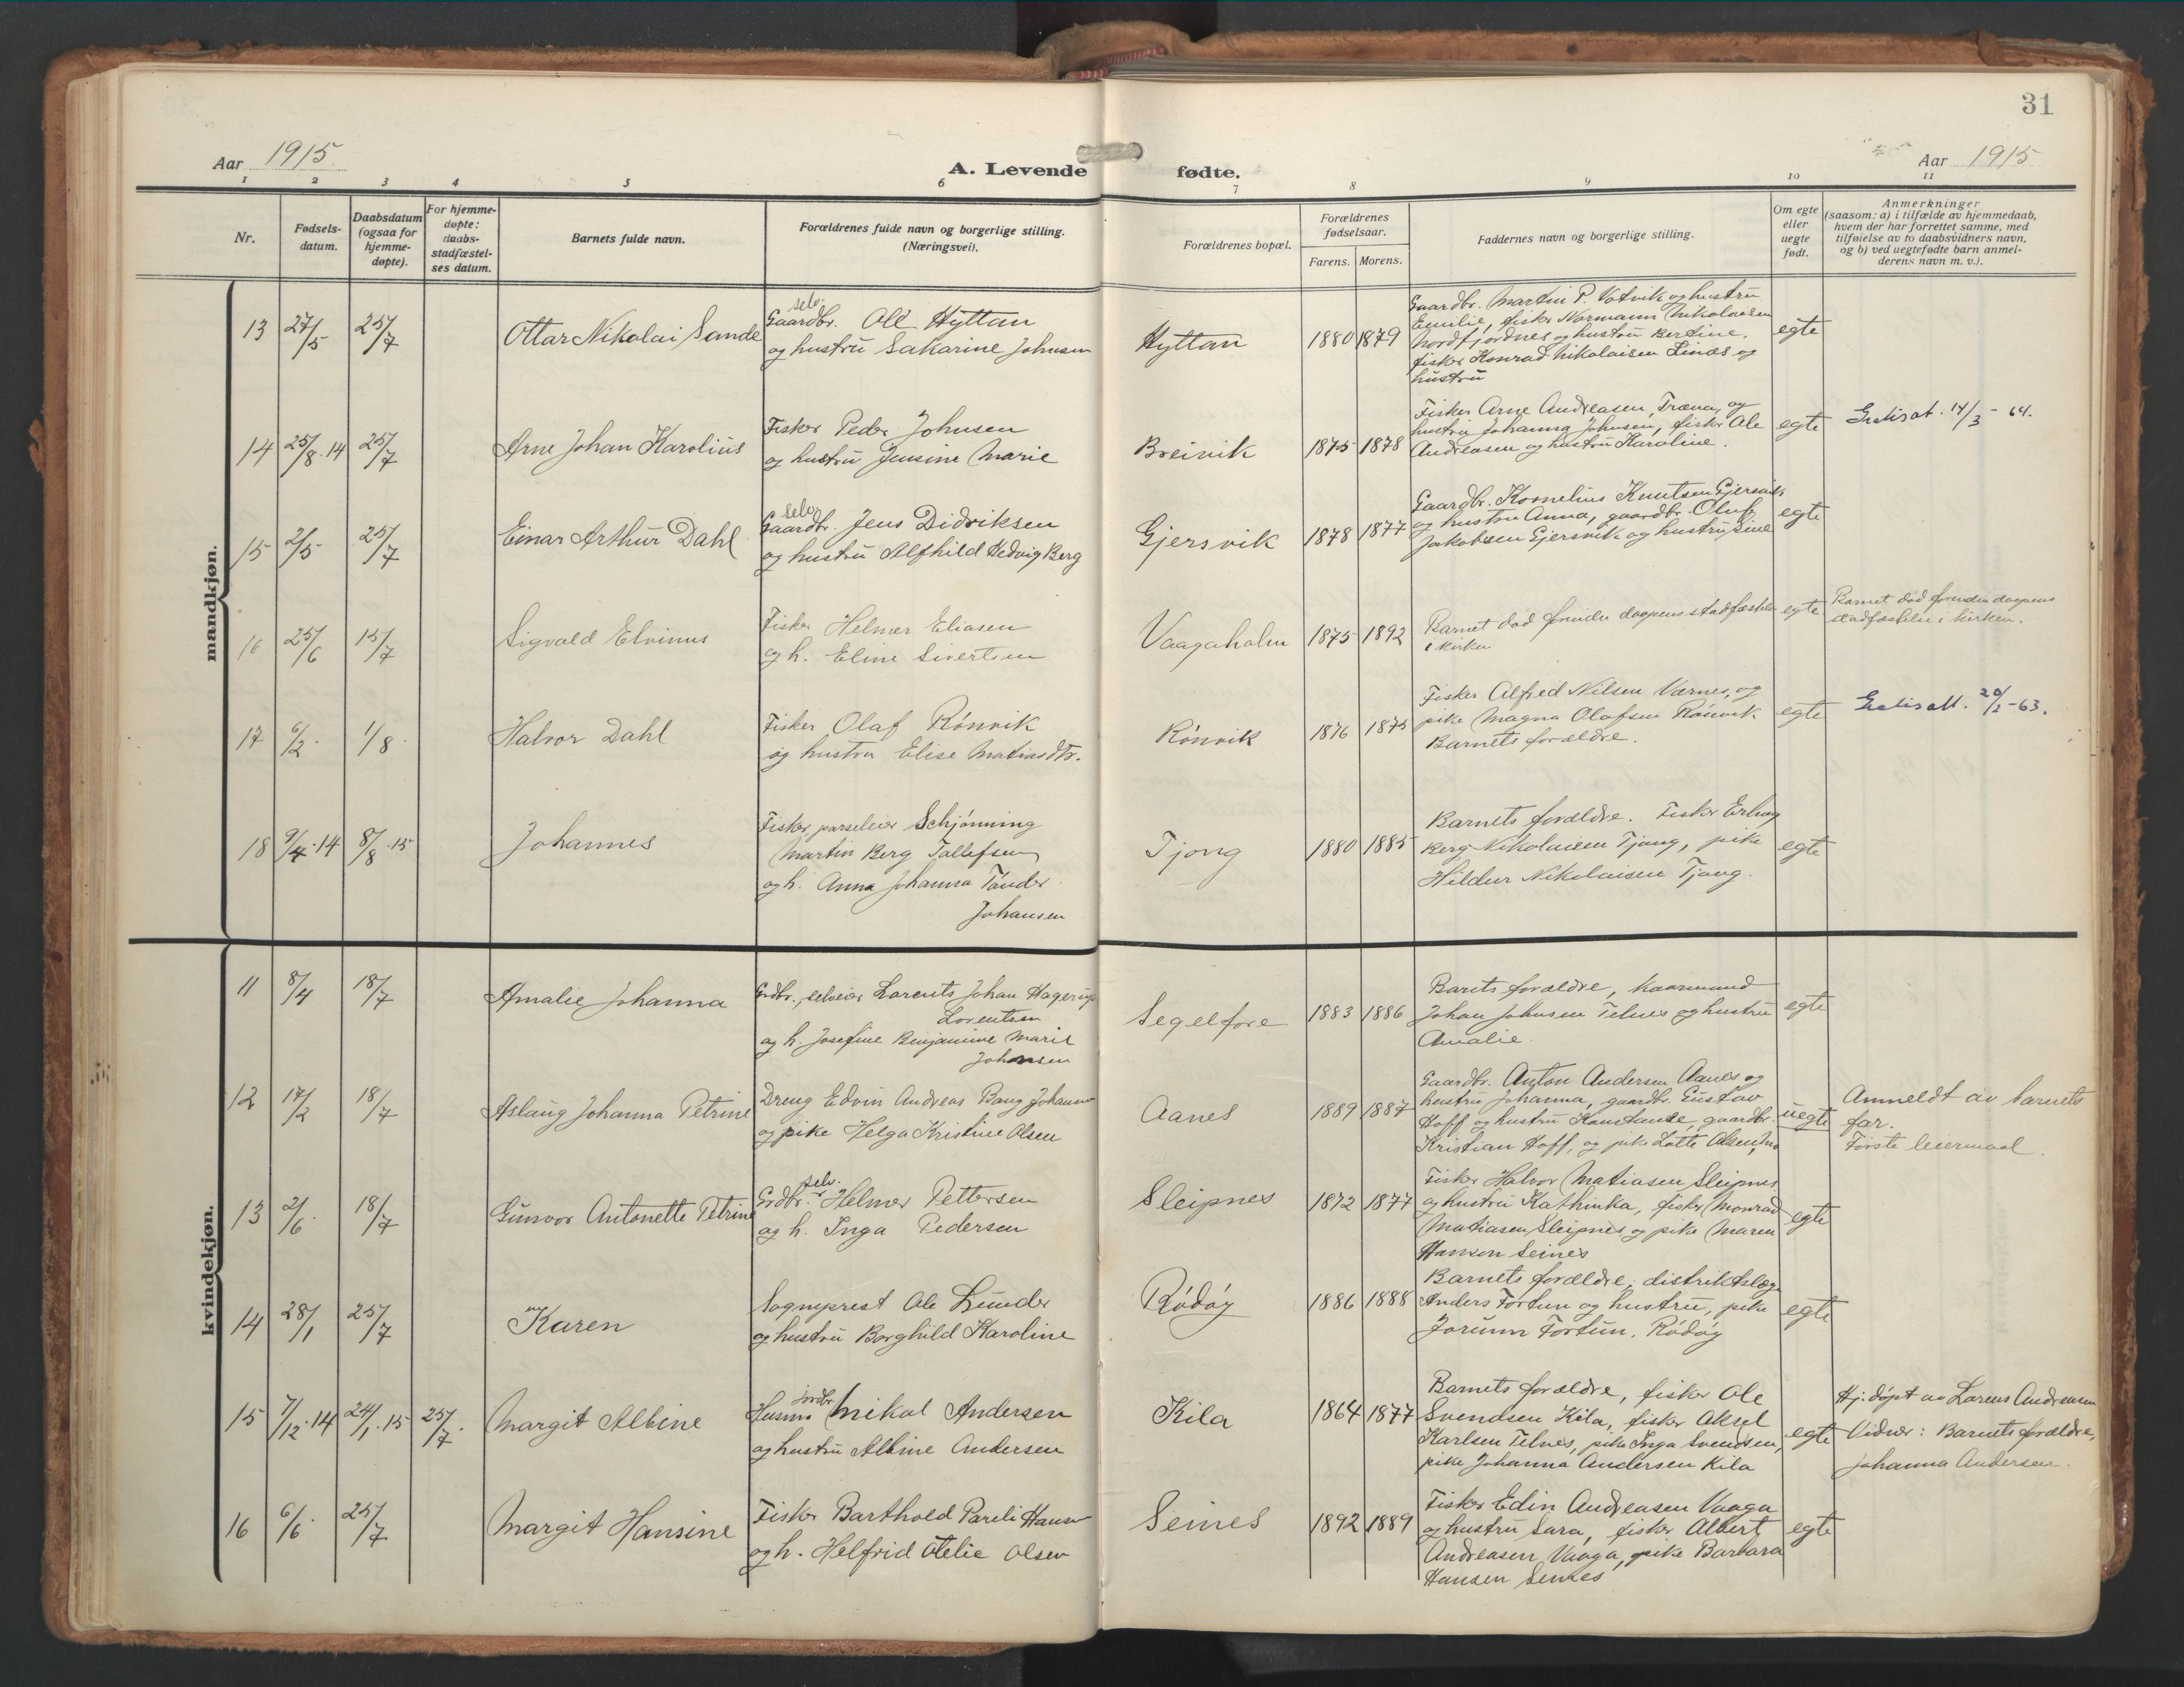 31
Aar 1915
A. Levende fødte.
Aar 1915
1 2 3 4 5 6 7 8 9 10 11
Nr.
Fødsels-
datum.
Daabsdatum
(ogsaa for
hjemme-
døpte).
For hjemme-
døpte:
daabs-
stadfæstel-
ses datum.
Barnets fulde navn.
Forældrenes fulde navn og borgerlige stilling.
(Næringsvei).
Forældrenes bopæl.
Forældrenes
fødselsaar.
Farens. Morens.
Faddernes navn og borgerlige stilling.
Om egte
eller
uegte
født.
Anmerkninger
(saasom: a) i tilfælde av hjemmedaab,
hvem der har forrettet samme, med
tilføielse av to daabsvidners navn,
og b) ved uegtefødte barn anmel-
derens navn m. v.).
mandkjøn.
13 27/5 25/7 Ottar Nikolai Sande
selv.
Gaardbr. Ole Hyttan
og hustru Sakarine Johnsen
Hyttan 1880 1879
Gaardbr. Martin P. Votvik og hustru
Emilie, fisker Normann Nikolaisen
Nordfjordnes og hustru Bertine,
fisker Konrad Nikolaisen Linæs og
hustru
egte
14 25/8.14 25/7 Arne Johan Karolius
Fisker Peder Johnsen
og hustru Jensine Marie
Breivik 1875 1878
Fisker Arne Andreasen, Træna, og
hustru Johanna Johnsen, fisker Ole
Andreasen og hustru Karoline.
egte
14/3 - 64.
15 2/5 25/7 Einar Arthur Dahl
selv
Gaardbr. Jens Didriksen
og hustru Alfhild Hedvig Berg
Gjersvik 1878 1877
Gaardbr. Kornelius Knutsen Gjersvik
og hustru Anna, gaardbr. Oluf
Jakobsen Gjersvik og hustru Line
egte
16 25/6 15/7 Sigvald Elvinus
Fisker Helmer Eliasen
og h. Eline Sivertsen
Vaagaholm 1875 1892
Barnet død forinden daapens stadfæstelse
i kirken
egte
Barnet død forinden daapens
stadfæstelse i kirken.
17 6/2. 1/8. Halvor Dahl
Fisker Olaf Rönvik
og hustru Elise Matiasdtr.
Rönvik 1876 1875
Fisker Alfred Nilsen Værnes, og
pike Magna Olafsen Rönvik
Barnets forældre.
egte
20/2-63.
18 9/4.14 8/8.15 Johannes
Fisker, parseleier Schjönning
Martin Berg Tollefsen
og h. Anna Johanna Tönder
Johansen
Tjong 1880 1885
Barnets forældre. Fisker Erling
Berg Nikolaisen Tjong, pike
Hildur Nikolaisen Tjong.
egte
kvindekjøn.
11 8/4 18/7 Amalie Johanna
Grdbr., selveier Lorents Johan Hagerup
Lorentsen
og h. Josefine Benjamine Marie
Johansen
Segelfore 1883 1886
Barets forældre, kaarmand
Johan Johnsen Telnes og hustru
Amalie.
egte
12 17/2 18/7 Aslaug Johanna Petrine
Dreng Edvin Andreas Bang Johansen
og pike Helga Kristine Olsen
Aanes 1889 1887
Gaardbr. Anton Andersen Aanes og
hustru Johanna, gaardbr. Gustav
Hoff og hustru Konstanse, gaardbr.
Kristian Hoff, og pike Lotte Olsen,
uegte
Anmeldt av barnets
far.
Første leiermaal.
13 2/6. 18/7 Gunvor Antonette Petrine
selv.
Grdbr. Helmer Pettersen
og h. Inga Pedersen
Sleipnes 1872 1877
Fisker Halvor Matiasen Sleipnes
og hustru Kathinka, fisker Monrad
Matiasen Sleipnes og pike Maren
Hansen Seines
egte
14 28/1 25/7 Karen
Sogneprest Ole Lunder
og hustru Borghild Karoline
Rödöy 1886 1888
Barnets forældre, distriktslæge
Anders Fortun og hustru, pike
Jorunn Fortun. Rödöy
egte
15 7/12.14 24/1.15 25/7. Margit Albine
jordbr
Husm. Mikal Andersen
og hustru Albine Andersen
Kila 1864 1877
Barnets forældre, fisker Ole
Svendsen Kila, fisker Aksel
Karlsen Telnes, pike Inga Svendsen,
pike Johanna Andersen Kila
egte
Hj. döpt av Lorens Andreasen
Vidner: Barnets forældre,
Johanna Andersen.
16 6/6. 25/7 Margit Hansine
Fisker Barthold Pareli Hansen
og h. Helfrid Otelie Olsen
Seines 1892 1889
Fisker Edin Andreasen Vaaga
og hustru Sara, fisker Albert
Andreasen Vaaga, pike Barbara
Hansen Seines
egte